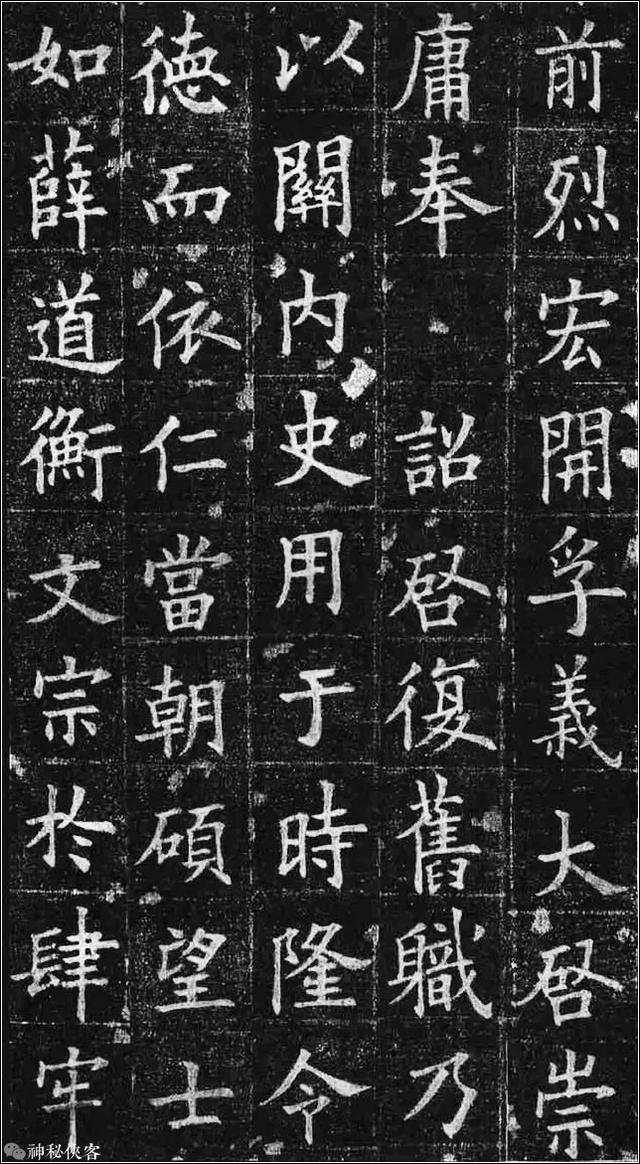 前烈宏開孚義大啓崇
庸奉詔啓復舊職乃
以關内史用于時隆令
德而依仁當朝碩望士
如薛道衡文宗於肆牢
神秘侠客